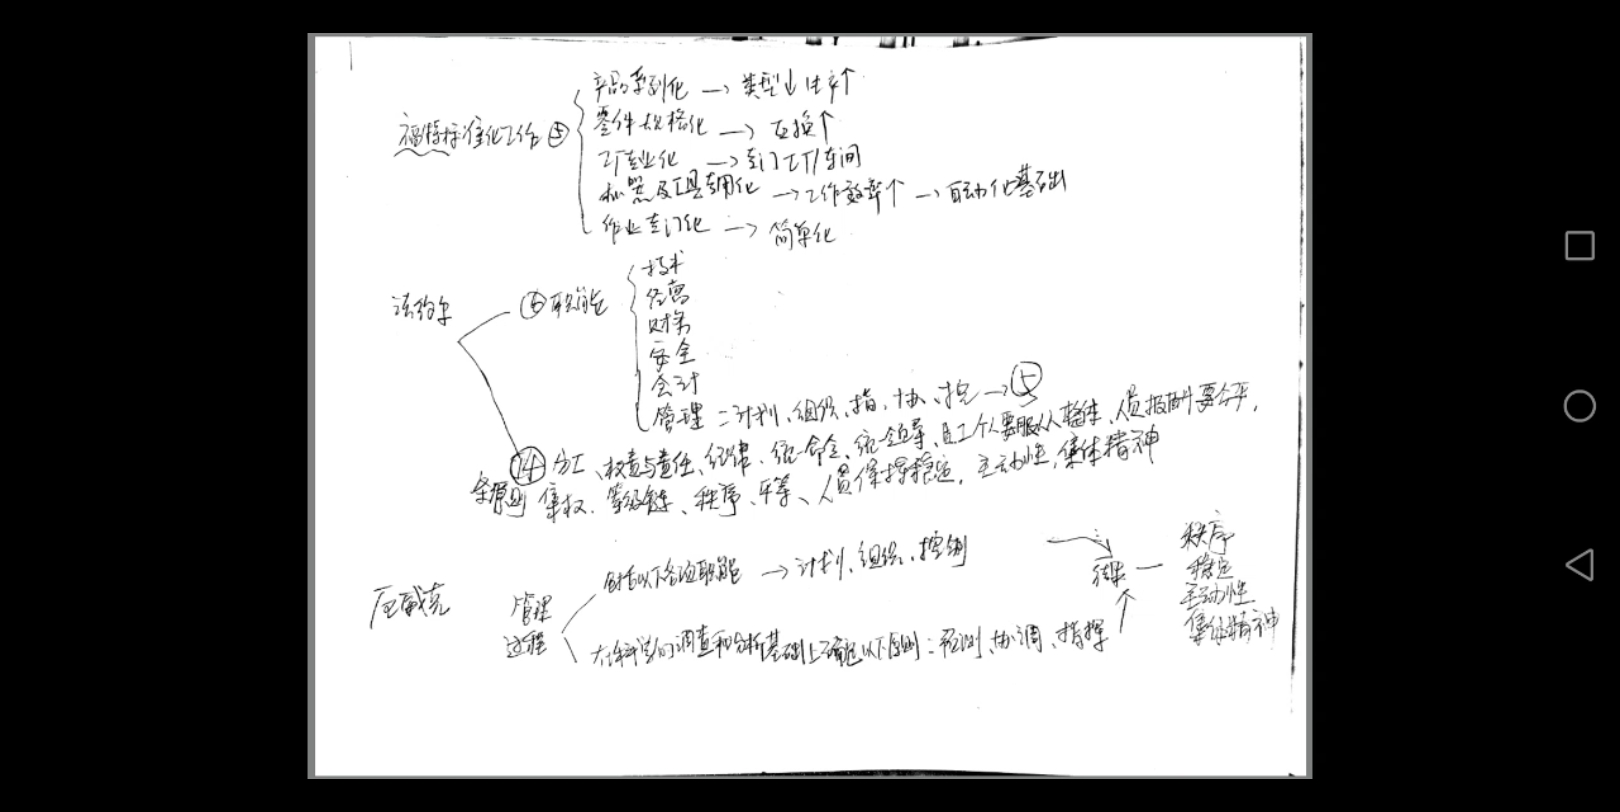 福特标准化工作⑤
产品系列化 → 类型↓ 生产↑
零件规格化 → 互换↑
工厂专业化 → 专门工厂/车间
机器及工具专用化 → 工作效率↑ → 自动化基础
作业专门化 → 简单化
法约尔
⑥职能
技术
经营
财务
安全
会计
管理：计划、组织、指、协、控 → ⑤
⑭条原则
分工、权责与责任、纪律、统一命令、统一领导、员工个人要服从整体、人员报酬要公平，
集权、等级链、秩序、平等、人员保持稳定，主动性，集体精神
厄威克
管理过程
包括以下各项职能 → 计划、组织、控制
在科学的调查和分析基础上确定以下原则：预测、协调、指挥
结果 —
秩序
稳定
主动性
集体精神